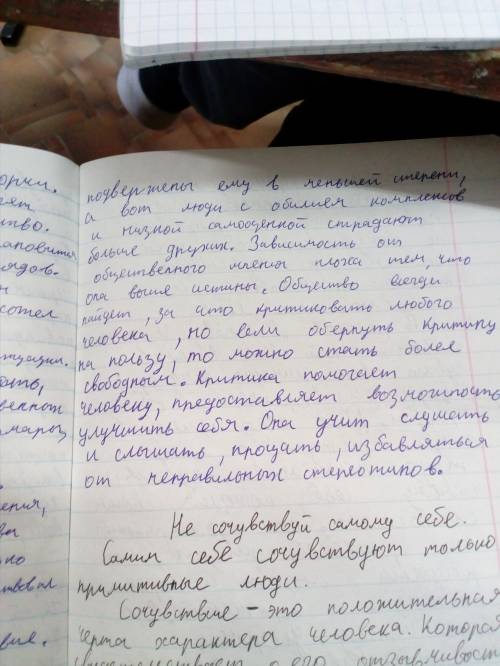 орки.
ет
тво.
ановится
рядов.
н
хотел
туации.
ать,
венной
мары,
.
ения,
вы
но
вовал
вие.
подвержены ему в меньшей степени,
а вот люди с обилием комплексов
и низкой самооценкой страдают
больше других. Зависимость от
общественного мнения плоха тем, что
она выше истины. Общество всегда
найдет, за что критиковать любого
человека, но если обернуть критику
на пользу, то можно стать более
свободным. Критика помогает
человеку, предоставляет возможность
улучшить себя. Она учит слушать
и слышать, прощать, избавляться
от неправильных стереотипов.
Не сочувствуй самому себе.
Самим себе сочувствуют только
примитивные люди.
Сочувствие - это положительная
черта характера человека. Которая
о его отзывчивост